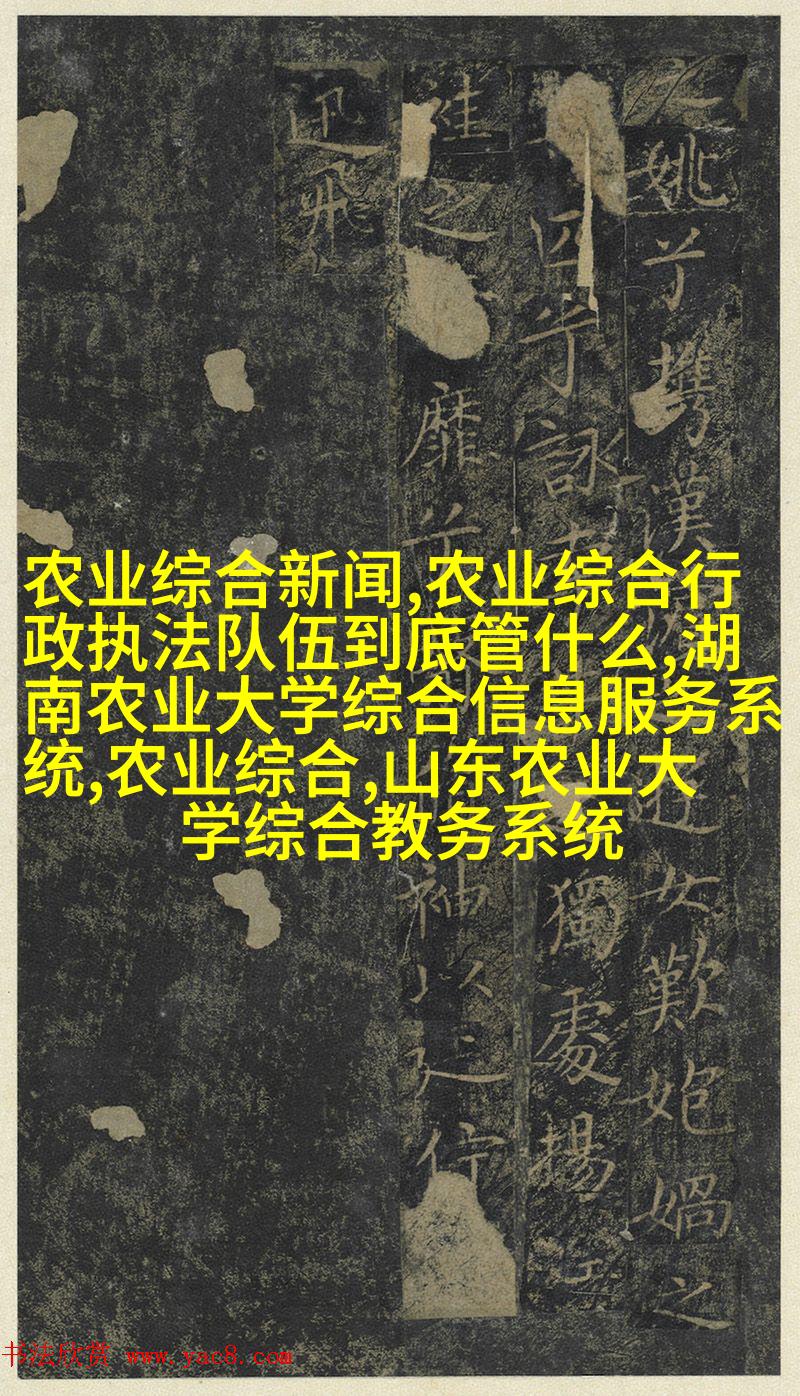 农业综合新闻,农业综合行
政执法队伍到底管什么,湖
南农业大学综合信息服务系
统,农业综合,山东农业大
学综合教务系统
姚兮攜漢遊女歎媧之
匹兮詠獨處揚
袿之靡兮袖以延佇
迅飛
书法欣赏 www.yac8.com